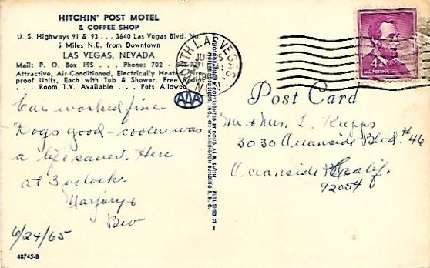 HITCHIN' POST MOTEL
& COFFEE SHOP
U. S. Highways 91 & 93 . . . 3640 Las Vegas Blvd. No.
5 Miles N.E. from Downtown
LAS VEGAS, NEVADA
Mail: P. O. Box 195 . . . Phone: 702 -
Attractive, Air-Conditioned, Electrically Heated
proof Units, Each with Tub & Shower. Free
Room T.V. Available . . . Pets Allowed
AAA
NORTH LAS VEGAS
4¢
Post Card
Car worked fine
Dogs good - cooler was
a life saver. Here
at 3 o'clock.
Marjory &
Bev
6/24/65
Mr & Mrs. L.
3030 Oceanside Blvd. #46
Oceanside, Calif.
92054
88745-B